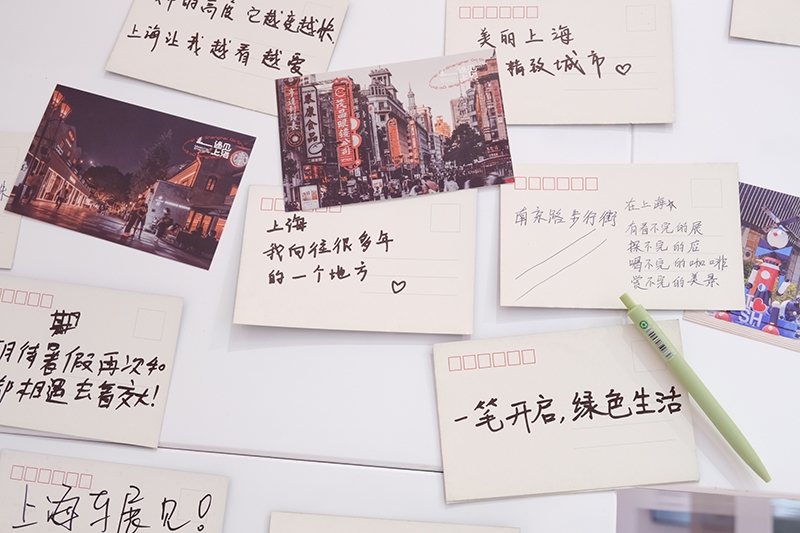 的高度 它越变越快,
上海让我越看越爱
美丽上海
精致城市♡
泰康食品
茂昌眼镜公司
遇见上海
上海
我向往很多年
的一个地方 ♡
南京路步行街
在上海
有看不完的展
探不完的店
喝不完的咖啡
赏不完的美景
SH
期
待暑假再次和
相遇去看交大!
一笔开启,绿色生活
上海车展见!